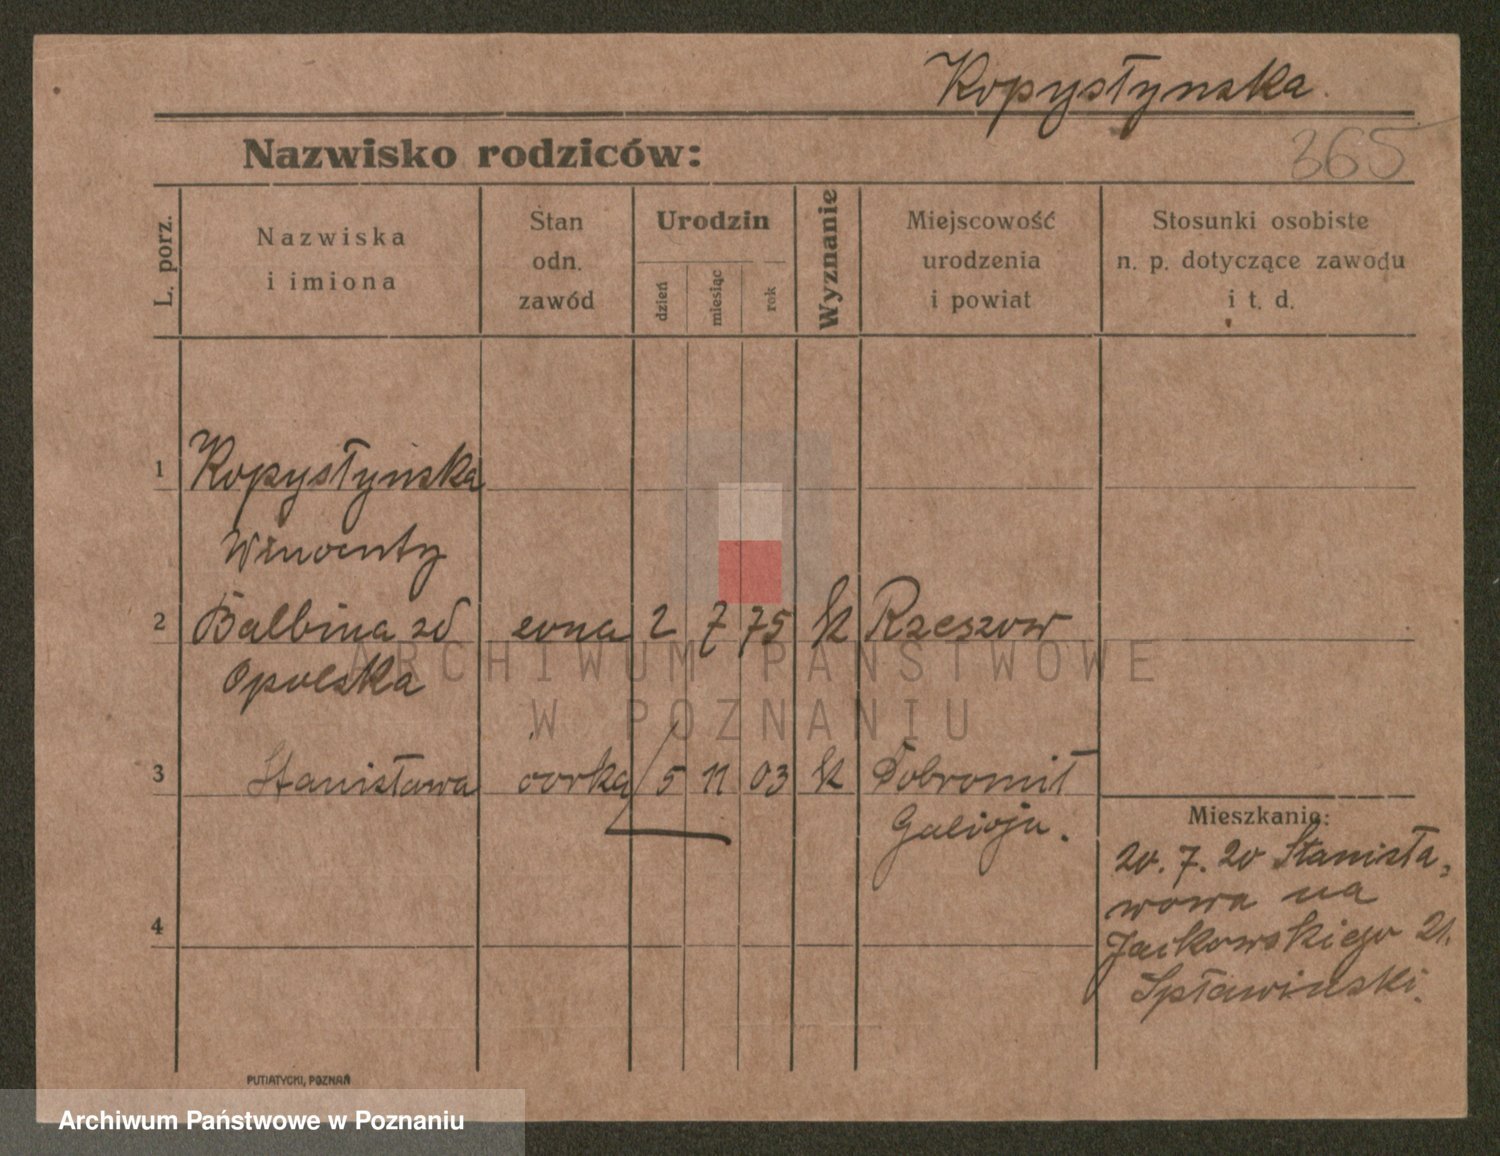 Kopystyńska.
365
Nazwisko rodziców:
L. porz.
Nazwiska
i imiona
Stan
odn.
zawód
Urodzin
dzień
miesiąc
rok
Wyznanie
Miejscowość
urodzenia
i powiat
Stosunki osobiste
n. p. dotyczące zawodu
i t. d.
1 Kopystyńska
Wincenty
2 Balbina zd żona 2 7 75 k Rzeszow
Opolska
ARCHIWUM PAŃSTWOWE
W POZNANIU
3 Stanisława córka 5 11 03 k Dobromil
Galicja.
Mieszkanie:
20.7.20 Stanisła-
wowa na
Jackowskiego 21.
Spławinski.
4
PUTIATYCKI, POZNAŃ
Archiwum Państwowe w Poznaniu